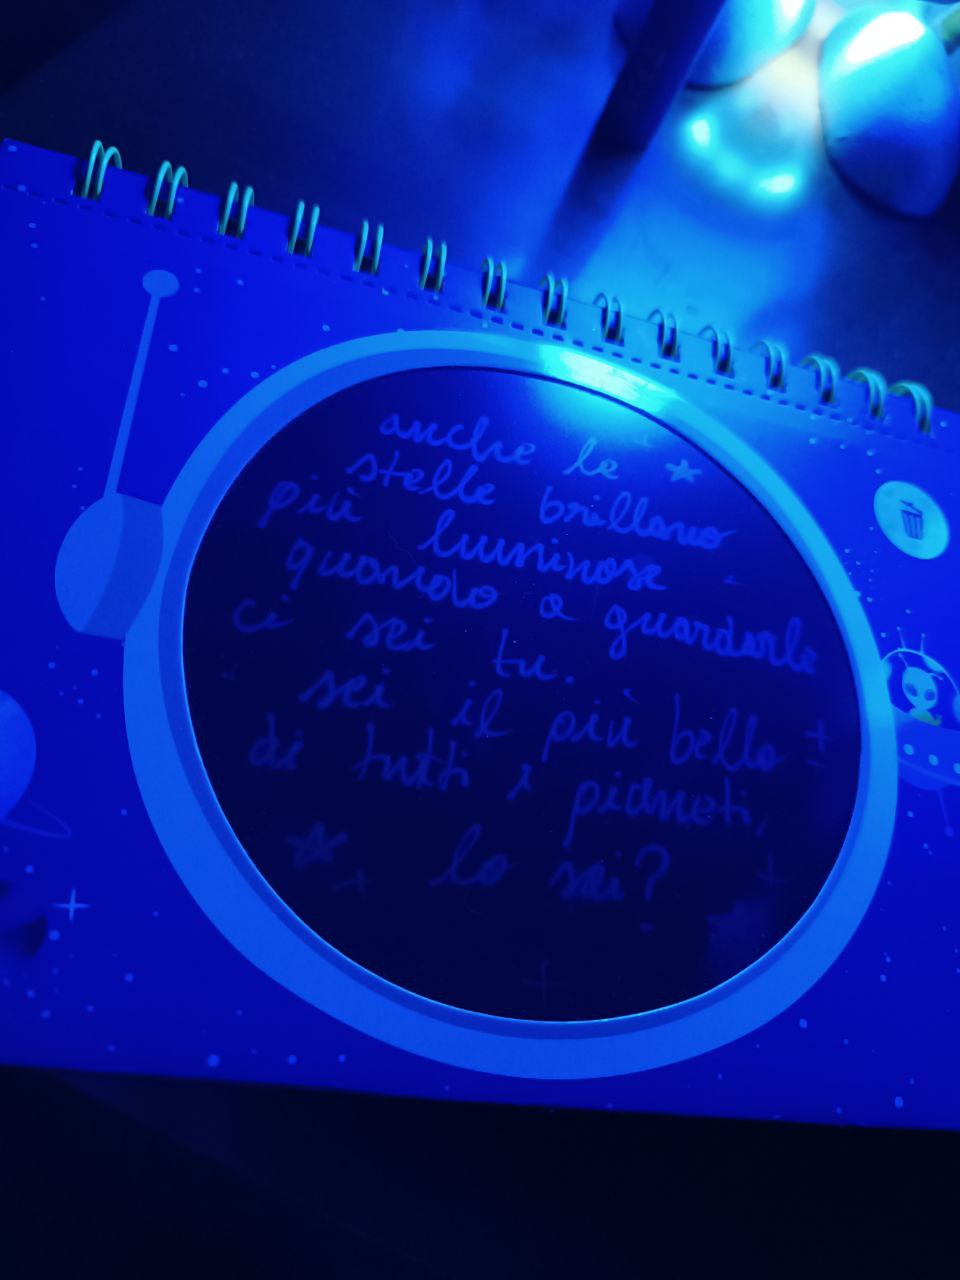 anche le
stelle brillano
più luminose
quando a guardarle
ci sei tu.
sei il più bello
di tutti i pianeti,
lo sai?